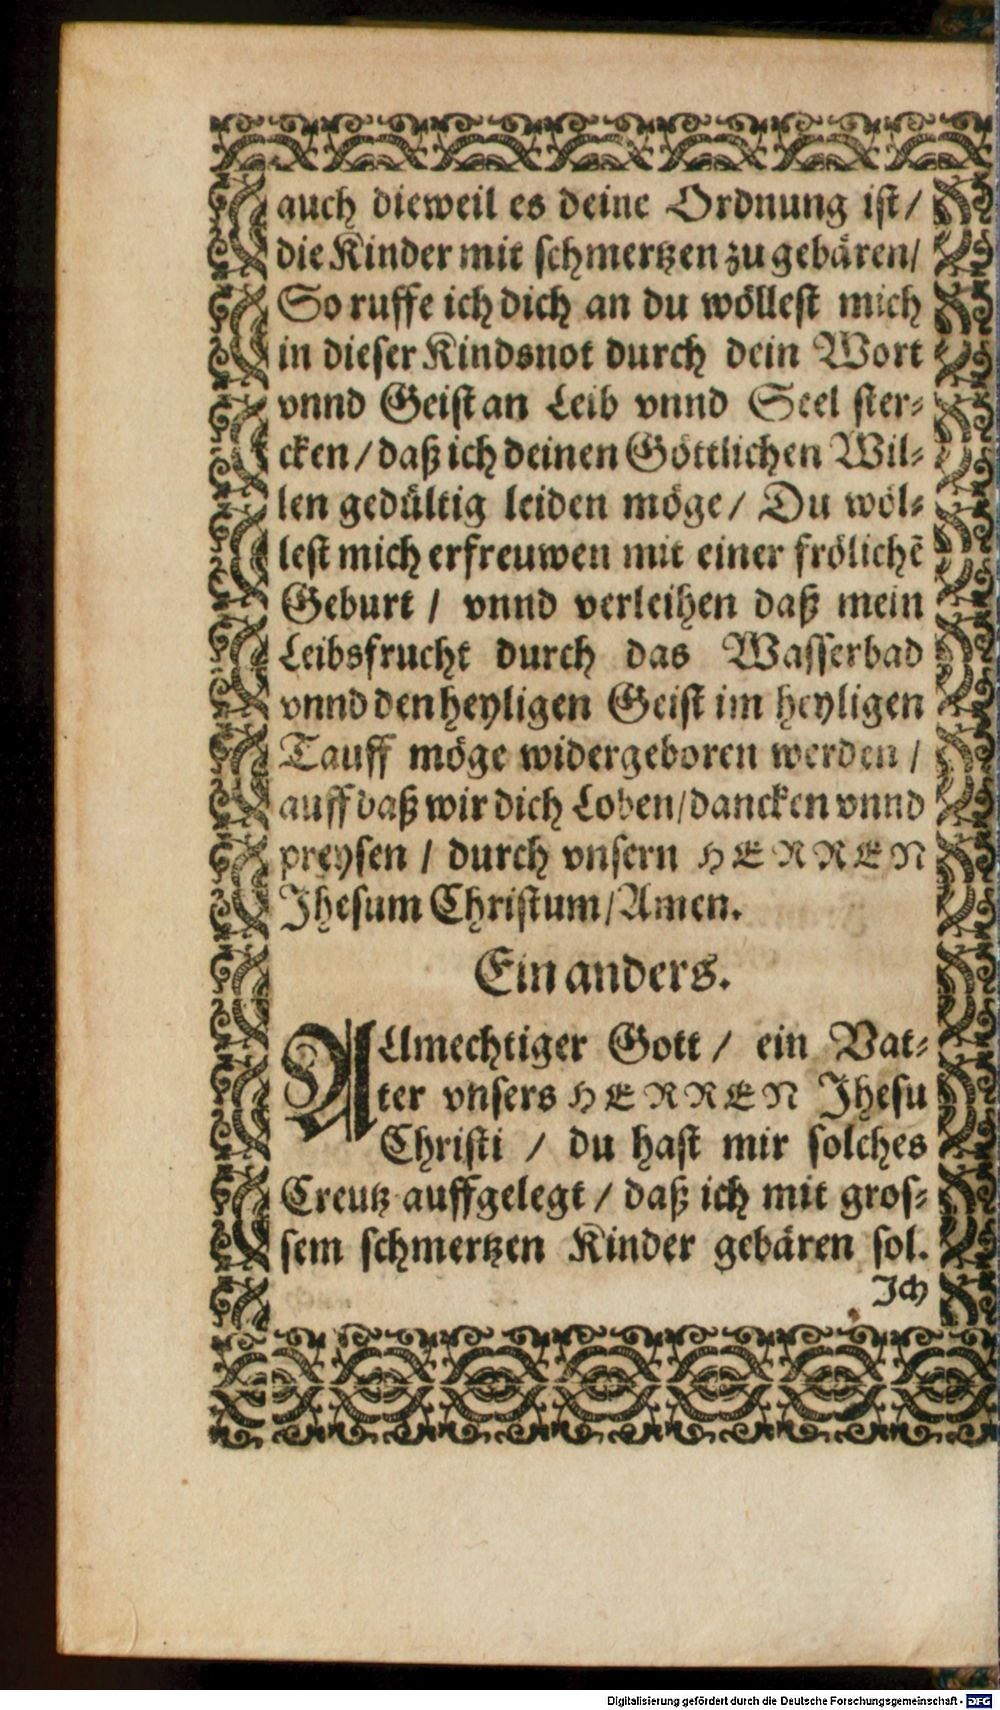 auch dieweil es deine Ordnung ist/
die Kinder mit schmertzen zu gebären/
So ruffe ich dich an du wöllest mich
in dieser Kindsnot durch dein Wort
vnnd Geist an Leib vnnd Seel ster⸗
cken/daß ich deinen Göttlichen Wil⸗
len gedültig leiden möge/ Du wöl⸗
lest mich erfreuwen mit einer frölichẽ
Geburt / vnnd verleihen daß mein
Leibsfrucht durch das Wasserbad
vnnd den heyligen Geist im heyligen
Tauff möge widergeboren werden /
auff daß wir dich Loben/dancken vnnd
preysen / durch vnsern HERREN
Jhesum Christum/Amen.
Ein anders.
ALlmechtiger Gott / ein Vat⸗
ter vnsers HERREN Jhesu
Christi / du hast mir solches
Creutz auffgelegt / daß ich mit gros⸗
sem schmertzen Kinder gebären sol.
Jch
Digitalisierung gefördert durch die Deutsche Forschungsgemeinschaft - DFG